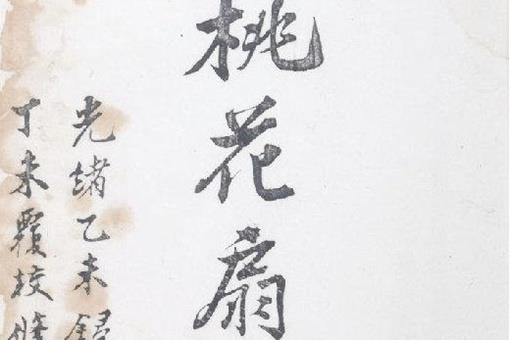 桃花扇
光緒乙未
丁未覆校